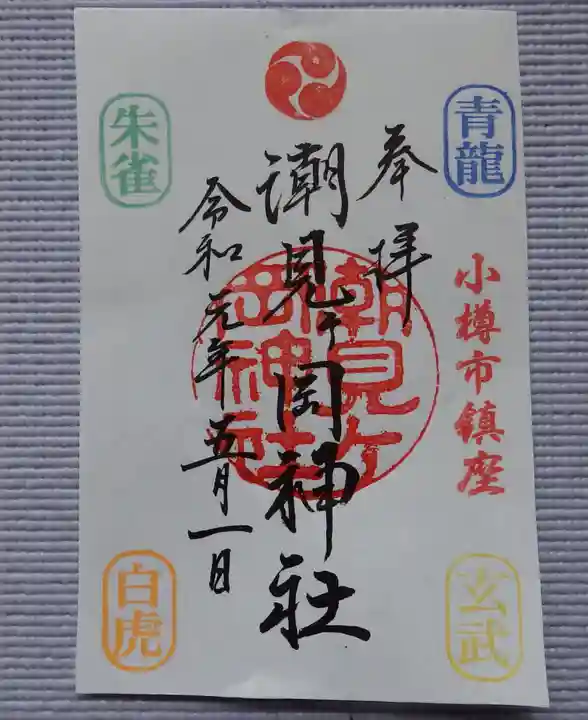 青龍
奉拝
小樽市鎮座
玄武
潮見ヶ岡神社
潮見ヶ岡神社
朱雀
令和元年五月一日
白虎